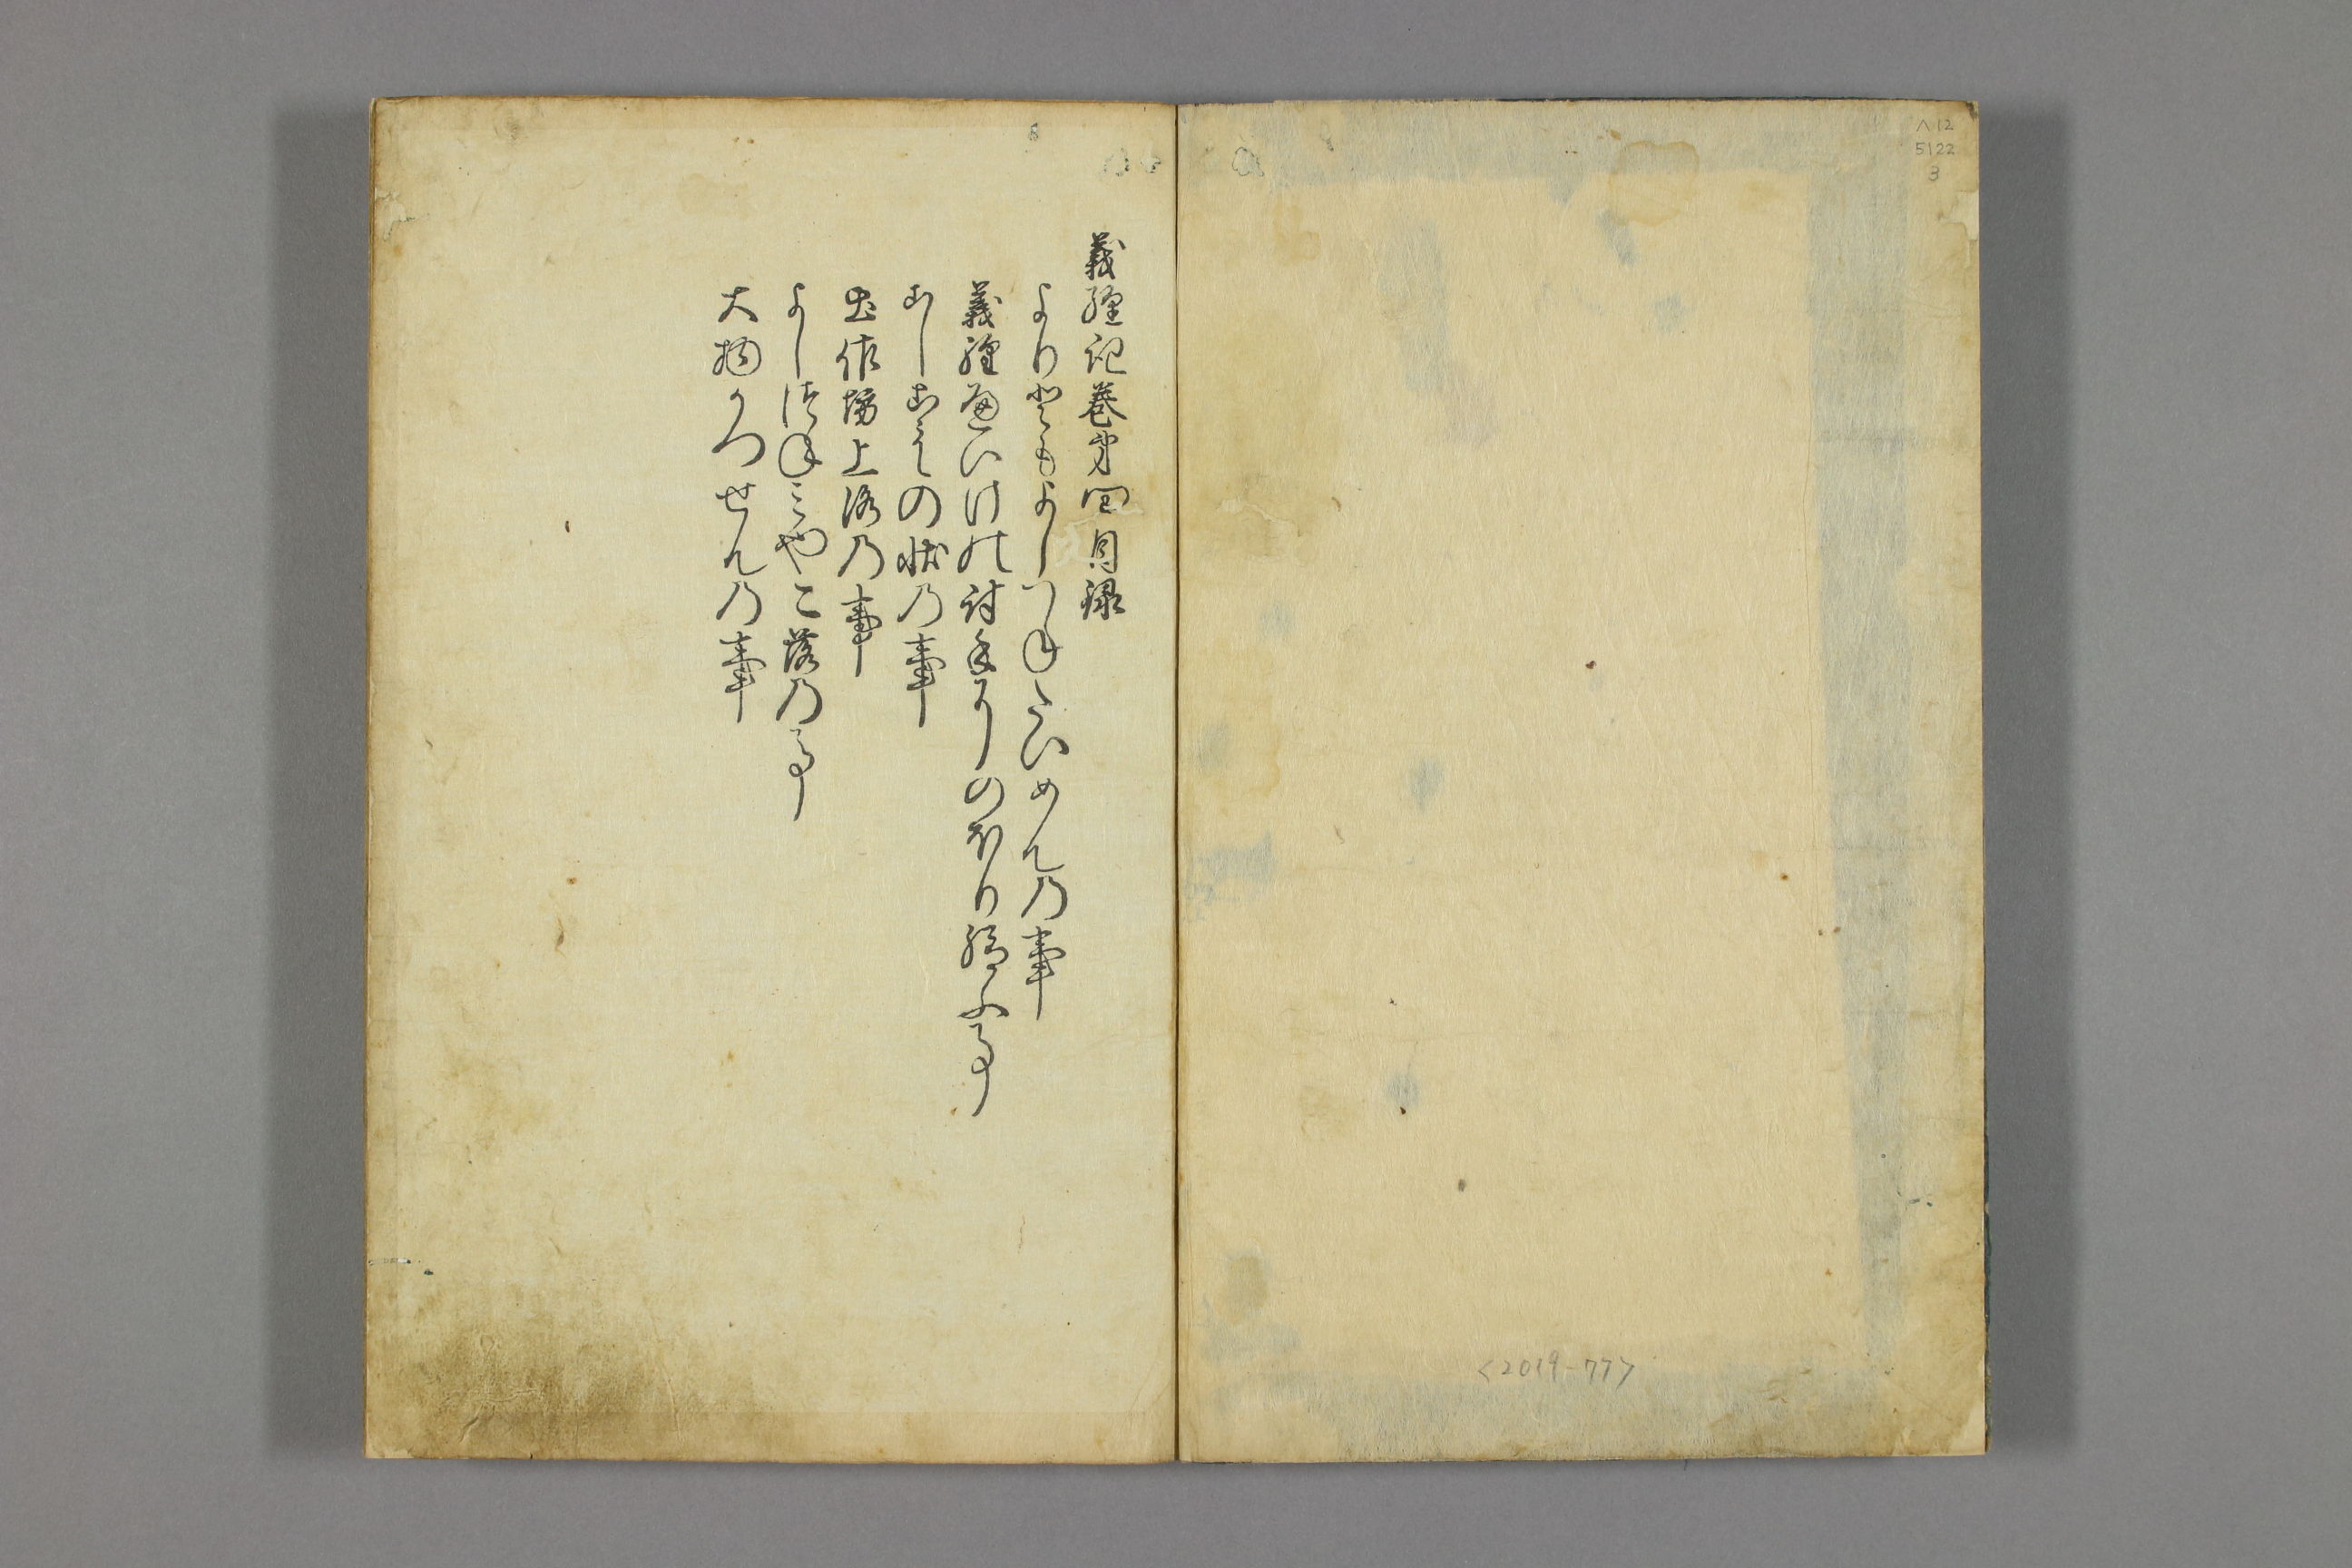 ヘ12
5122
3
<2019-77>
義經記巻第四目録
よりともよしつねたいめんの事
義經へいけの討手にのほり給ふ事
こしこえの状の事
土佐坊上洛の事
よしつねみやこ落の事
大物かつせんの事